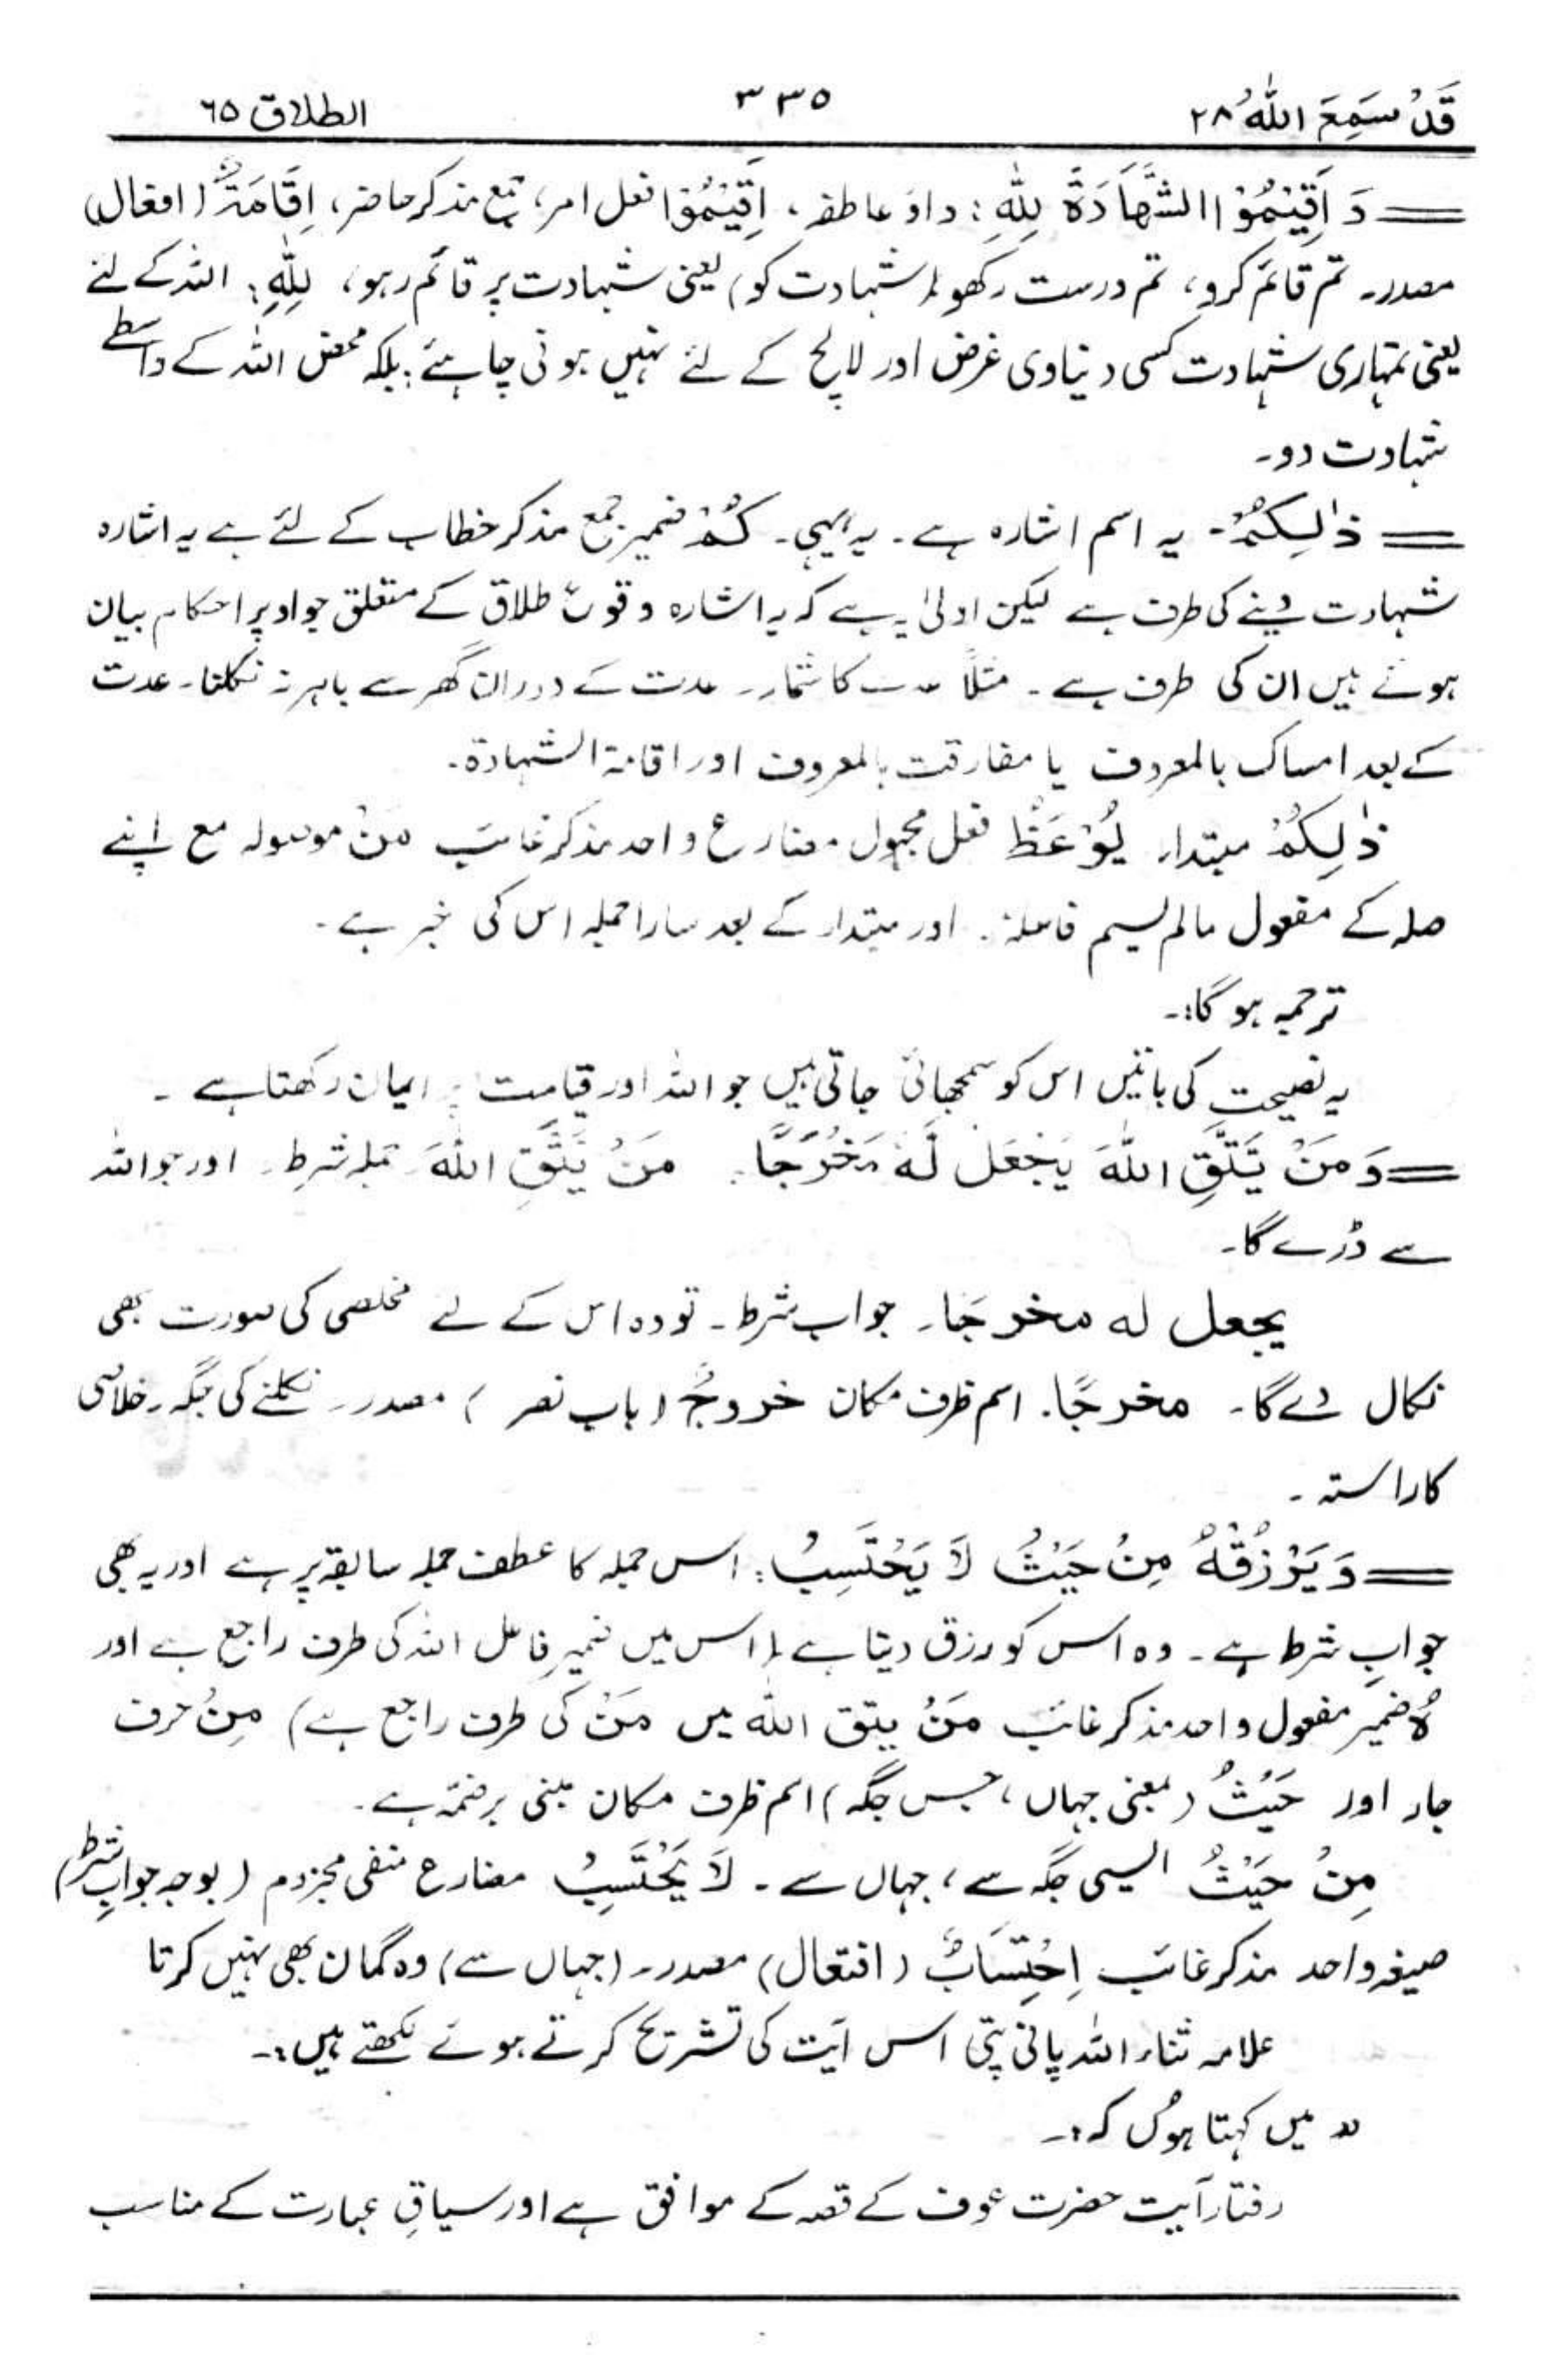 قَدْ سَمِعَ اللّٰہُ ۲۸ ۳۳۵ الطلاق ۶۵
= وَ اَقِیْمُوْا الشَّھَادَۃَ لِلّٰہِ: واؤ عاطفہ، اَقِیْمُوْا فعل امر، جمع مذکر حاضر، اِقَامَۃٌ (افعال)
مصدر۔ تم قائم کرو، تم درست رکھو (شہادت کو) یعنی شہادت پر قائم رہو، لِلّٰہِ: اللہ کے لئے
یعنی تمہاری شہادت کسی دنیاوی غرض اور لالچ کے لئے نہیں ہونی چاہئے؛ بلکہ محض اللہ کے واسطے
شہادت دو۔
= ذٰلِکُمْ۔ یہ اسم اشارہ ہے۔ یہ، یہی۔ کُمْ ضمیر جمع مذکر خطاب کے لئے ہے یہ اشارہ
شہادت دینے کی طرف ہے لیکن اولیٰ یہ ہے کہ یہ اشارہ وقوعِ طلاق کے متعلق جو اوپر احکام بیان
ہوئے ہیں ان کی طرف ہے۔ مثلاً عدت کا شمار۔ عدت کے دوران گھر سے باہر نہ نکلنا۔ عدت
کے بعد امساک بالمعروف یا مفارقت بالمعروف اور اقامۃ الشہادۃ۔
ذٰلِکُمْ مبتداء۔ یُوْعَظُ فعل مجہول مضارع واحد مذکر غائب مَنْ موصولہ مع اپنے
صلہ کے مفعول مالم یسم فاعلہٗ۔ اور مبتدار کے بعد سارا جملہ اس کی خبر ہے۔
ترجمہ ہوگا:۔
یہ نصیحت کی باتیں اس کو سمجھائی جاتی ہیں جو اللہ اور قیامت پر ایمان رکھتا ہے۔
= وَمَنْ یَّتَّقِ اللّٰہَ یَجْعَلْ لَّہٗ مَخْرَجًا۔ مَنْ یَّتَّقِ اللّٰہَ۔ جملہ شرط۔ اور جو اللہ
سے ڈرے گا۔
یجعل لہ مخرجًا۔ جواب شرط۔ تو وہ اس کے لئے مخلصی کی صورت بھی
نکال دے گا۔ مخرجًا۔ اسم ظرف مکان خروجٌ (باب نصر) مصدر۔ نکلنے کی جگہ۔ خلاصی
کا راستہ۔
= وَیَرْزُقْہُ مِنْ حَیْثُ لَا یَحْتَسِبُ: اس جملہ کا عطف جملہ سابقہ پر ہے اور یہ بھی
جوابِ شرط ہے۔ وہ اس کو رزق دیتا ہے (اس میں ضمیر فاعل اللہ کی طرف راجع ہے اور
ہُ ضمیر مفعول واحد مذکر غائب مَنْ یتق اللّٰہ میں مَنْ کی طرف راجع ہے) مِنْ حرف
جار اور حَیْثُ (بمعنی جہاں، جس جگہ) اسم ظرف مکان مبنی برضمّہ ہے۔
مِنْ حَیْثُ ایسی جگہ سے، جہاں سے۔ لَا یَحْتَسِبُ مضارع منفی مجزوم (بوجہ جوابِ شرط)
صیغہ واحد مذکر غائب اِحْتِسَابٌ (افتعال) مصدر۔ (جہاں سے) وہ گمان بھی نہیں کرتا
علامہ ثناء اللہ پانی پتی اس آیت کی تشریح کرتے ہوئے لکھتے ہیں:۔
" میں کہتا ہوں کہ:۔
رفتار آیت حضرت عوف کے قصہ کے موافق ہے اور سیاقِ عبارت کے مناسب